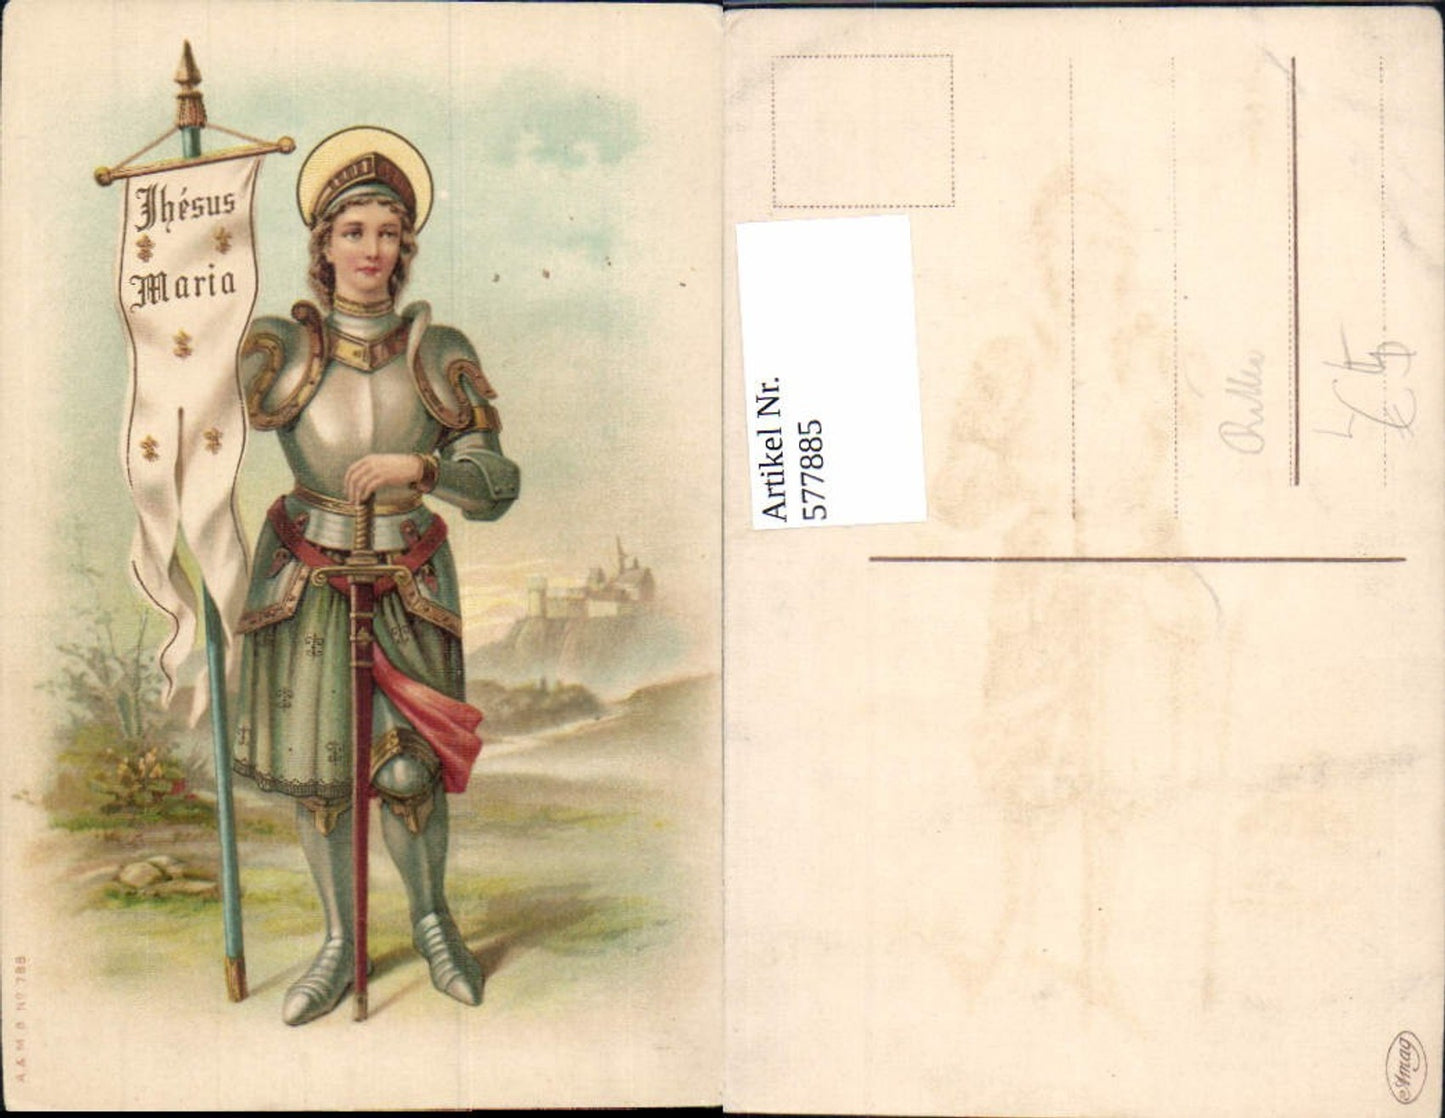 Jhésus
Maria
A & M B Nº 788
Artikel Nr.
577885
Amag